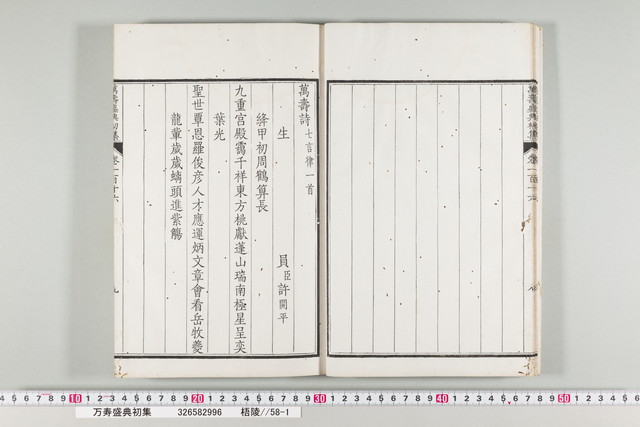 萬壽盛典初集
卷一百十六
萬壽詩七言律一首
生 員臣許開平
絳甲初周鶴算長
九重宫殿靄千祥東方桃獻蓬山瑞南極星呈奕
葉光
聖世覃恩羅俊彦人才應運炳文章會看岳牧夔
龍輩歲歲螭頭進紫觴
萬壽盛典初集
卷一百十六
九
万寿盛典初集 326582996 梧陵//58-1